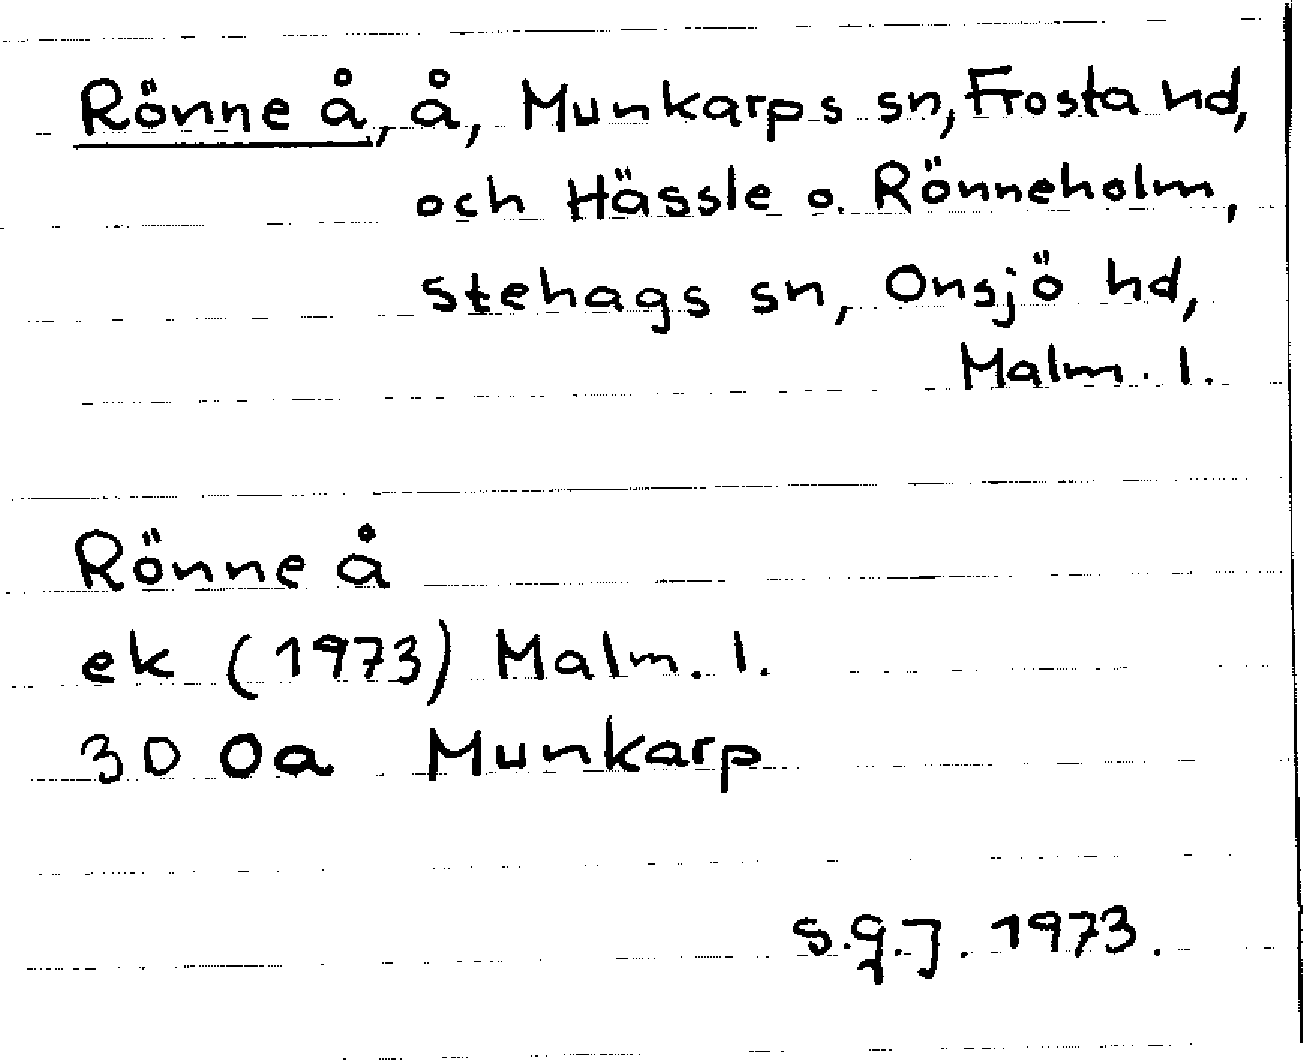 Rönne å, å, Munkarps sn, Frosta hd,
och Hässle o. Rönneholm,
Stehags sn, Onsjö hd,
Malm. l.
Rönne å
ek (1973) Malm. l.
3D 0a Munkarp
S.G.J. 1973.